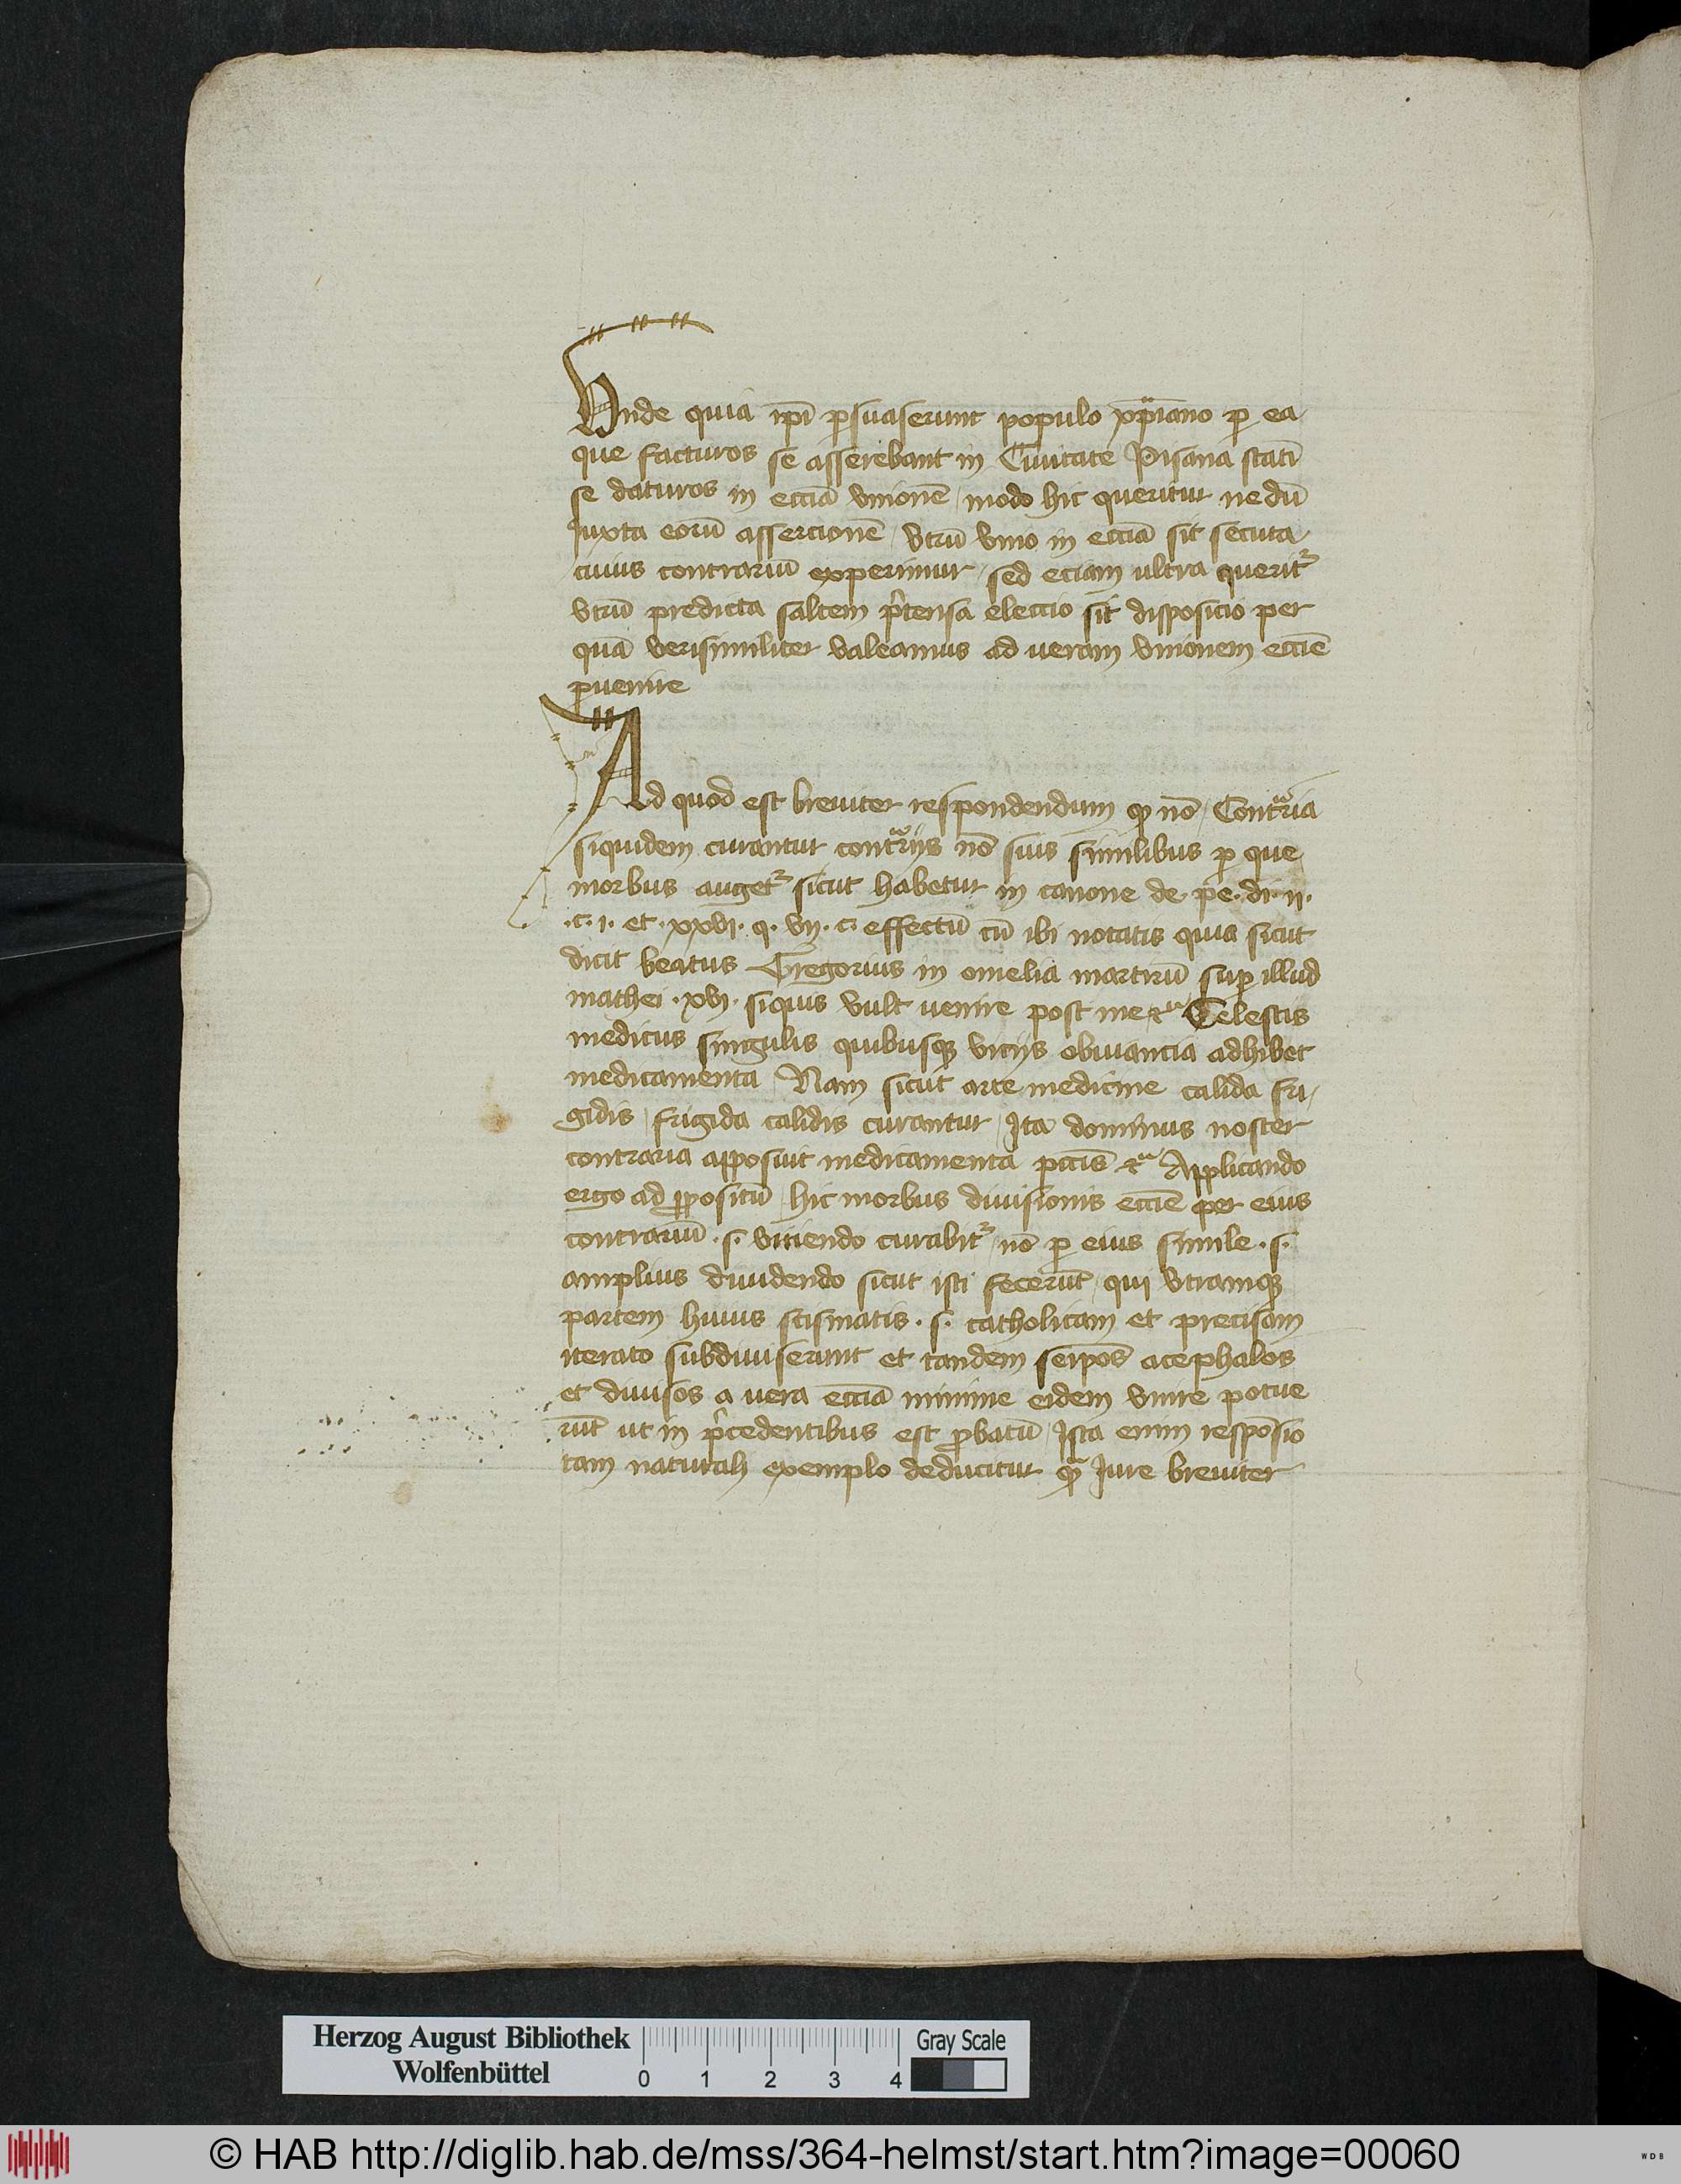 Unde quia ip̄i ꝑsuaserunt populo xp̄iano ꝑ ea
que facturos se asserebant in Ciuitate Pisana statī
se daturos in ecciā vnionē / modo hic queritur nedū
Juxta eorū assercionē / vtrū vnio in ecciā sit secuta
cuius contrariū experimur / sed eciam ultra querit᷑
vtrū predicta saltem p̄tensa eleccio sit disposicio per
quā verisimiliter valeamus ad ueram vnionem eccie̅
ꝑuenire
Ad quod est breuiter respondendum ꝙ nō / Contͣria
siquidem curantur contͣrijs nō suis similibus ꝑ que
morbus auget᷑ sicut habetur in canone de · pe · di · ij ·
· c · i · et · xxvi · q · vij · c · effectū cū ibi notatis quia sicut
dicit beatus Gregorius in omelia martirū suꝑ illud
mathei · xvi · siquis vult uenire post me ⁊cͣ Celestis
medicus singulis quibusqꝫ vicijs obuiancia adhibet
medicamenta / Nam sicut arte medicine calida fri/
gidis / frigida calidis curantur / Ita dominus noster
contraria apposuit medicamenta pcc̄is ⁊cͣ Applicando
ergo ad ꝓpositū / hic morbus diuisionis eccie̅ per eius
contrariū · s · vniendo curabit᷑ / nō ꝑ eius simile · s ·
amplius diuidendo sicut isti fecerūt / qui vtramqꝫ
partem huius scismatis · s · catholicam et precisam
iterato subdiuiserunt et tandem seip̄os acephalos
et diuisos a vera ecciā minime eidem vnire potue
rūt ut in p̄cedentibus est ꝓbatū / Ista enim respōsio
tam naturali exemplo deducitur qͣꝫ Jure breuiter
Herzog August Bibliothek
Wolfenbüttel
0 1 2 3 4
Gray Scale
© HAB http://diglib.hab.de/mss/364-helmst/start.htm?image=00060
WDB